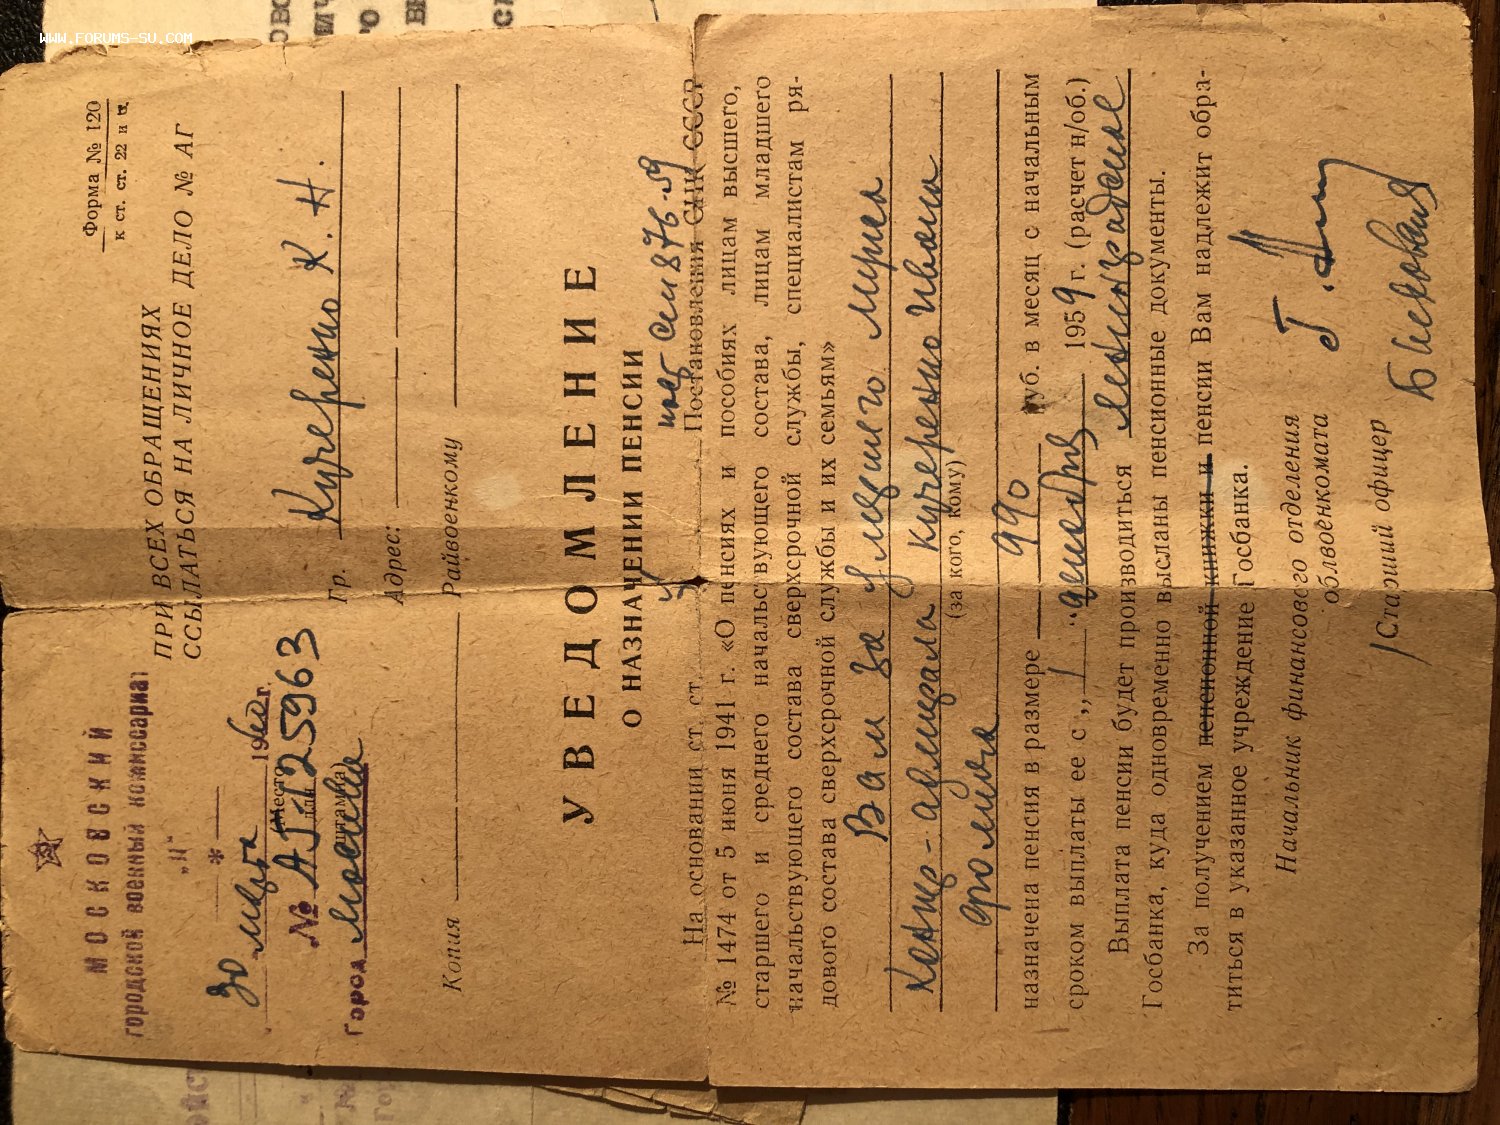 WWW.FORUMS-SU.COM
МОСКОВСКИЙ
городской военный комиссариат
„ “
*
30 марта 1960 г.
№ АГ-125963
(Место
для
штампа)
Город Москва
Форма № 120
к ст. ст. 22 и
ПРИ ВСЕХ ОБРАЩЕНИЯХ
ССЫЛАТЬСЯ НА ЛИЧНОЕ ДЕЛО № АГ
Гр. Кучеренко К. Н.
Адрес:
Копия Райвоенкому
УВЕДОМЛЕНИЕ
О НАЗНАЧЕНИИ ПЕНСИИ
876-59
На основании ст. ст. Постановления СНК СССР
№ 1474 от 5 июня 1941 г. «О пенсиях и пособиях лицам высшего,
старшего и среднего начальствующего состава, лицам младшего
начальствующего состава сверхсрочной службы, специалистам ря-
дового состава сверхсрочной службы и их семьям»
Вам за умершего мужа
контр-адмирала Кучеренко Ивана
(за кого, кому)
Фомича
назначена пенсия в размере 990 руб. в месяц с начальным
сроком выплаты ее с „1“ декабря 1959 г. (расчет н/об.)
Выплата пенсии будет производиться Ленинградское
Госбанка, куда одновременно высланы пенсионные документы.
За получением пенсионной книжки и пенсии Вам надлежит обра-
титься в указанное учреждение Госбанка.
Начальник финансового отделения
облвоенкомата
Старший офицер